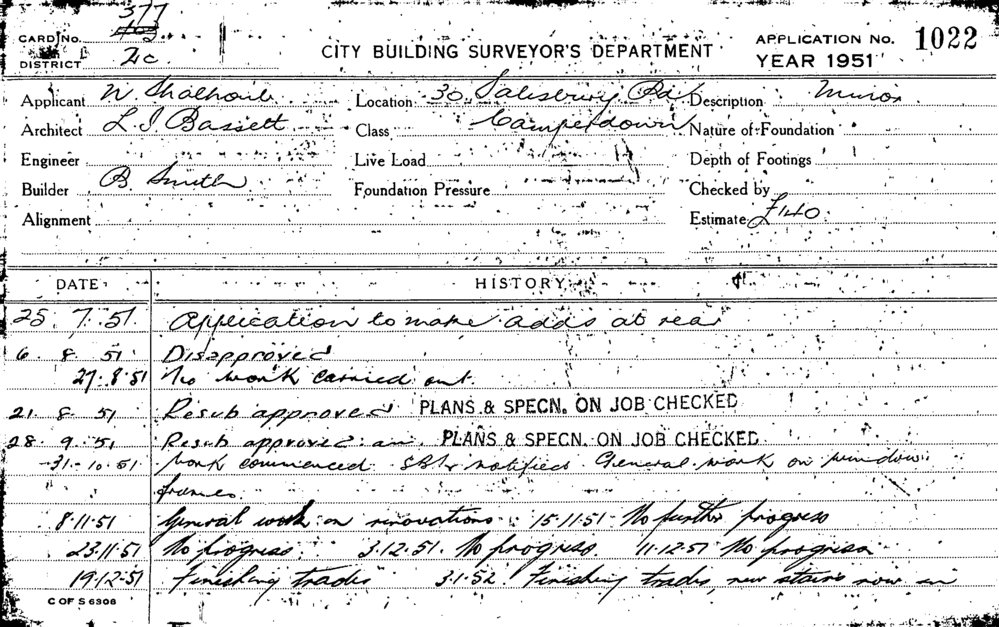 CARD No. 377
DISTRICT 2c
CITY BUILDING SURVEYOR'S DEPARTMENT
APPLICATION No. 1022
YEAR 1951
Applicant N Shalhoub Location 30 Salisbury Rd Description Minor
Architect L J Bassett Class Camperdown Nature of Foundation
Engineer Live Load Depth of Footings
Builder B. Smith Foundation Pressure Checked by
Alignment Estimate £140
DATE HISTORY
25. 7. 51. Application to make adds at rear
6. 8. 51 Disapproved
27.8.51 No work carried out.
21. 8. 51 Resub approved PLANS & SPECN. ON JOB CHECKED
28. 9. 51 Resub approved PLANS & SPECN. ON JOB CHECKED
31.10.51 Work commenced notified General work on window
frames.
8.11.51 General work on renovations 15.11.51 No further progress
23.11.51 No progress 3.12.51. No progress 11.12.51 No progress
19.12.51 Finishing trades 3.1.52 Finishing trades, new stairs now in
C OF S 6306